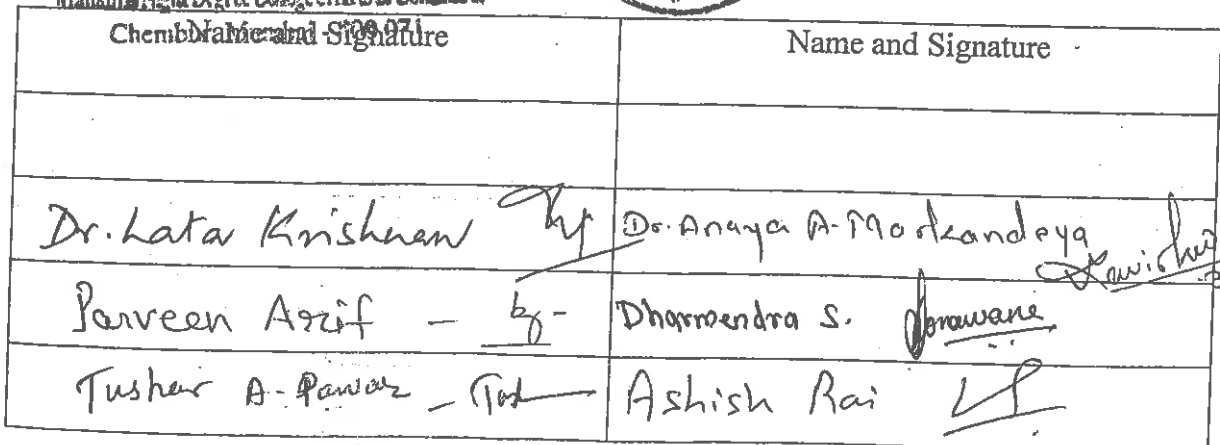 Name and Signature Name and Signature
Dr. Lata Krishnan Dr. Anaya A. Markandeya
Parveen Azif - Dharmendra S. Sonawane
Tushar A. Pawar - Ashish Rai